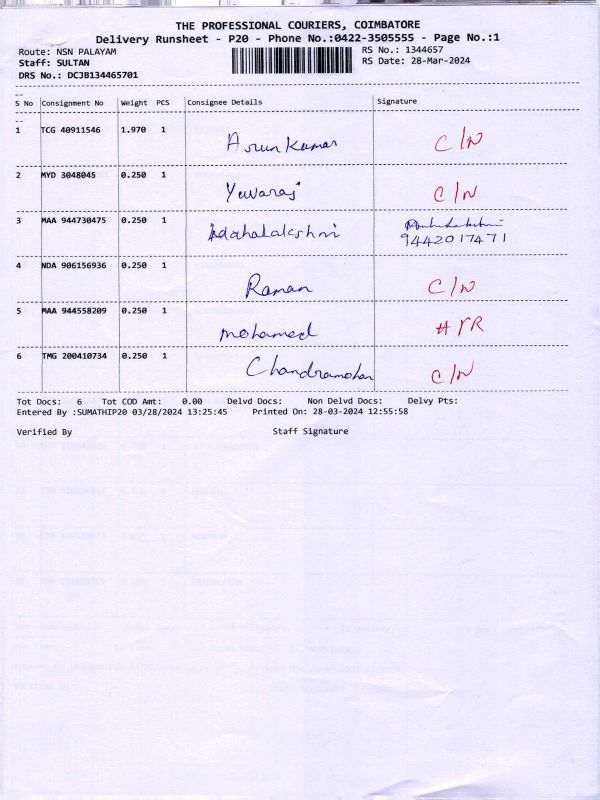 THE PROFESSIONAL COURIERS, COIMBATORE
Delivery Runsheet - P20 - Phone No.:0422-3505555 - Page No.:1
Route: NSN PALAYAM RS No.: 1344657
Staff: SULTAN RS Date: 28-Mar-2024
DRS No.: DCJB134465701
S No Consignment No Weight PCS Consignee Details Signature
1 TCG 40911546 1.970 1 Arun Kumar C/N
2 MYD 3048045 0.250 1 Yuvaraj C/N
3 MAA 944730475 0.250 1 Mahalakshmi
9442017471
4 NDA 906156936 0.250 1 Raman C/N
5 MAA 944558209 0.250 1 mohamed
6 TMG 200410734 0.250 1 Chandramohan C/N
Tot Docs: 6 Tot COD Amt: 0.00 Delvd Docs: Non Delvd Docs: Delvy Pts:
Entered By :SUMATHIP20 03/28/2024 13:25:45 Printed On: 28-03-2024 12:55:58
Verified By Staff Signature